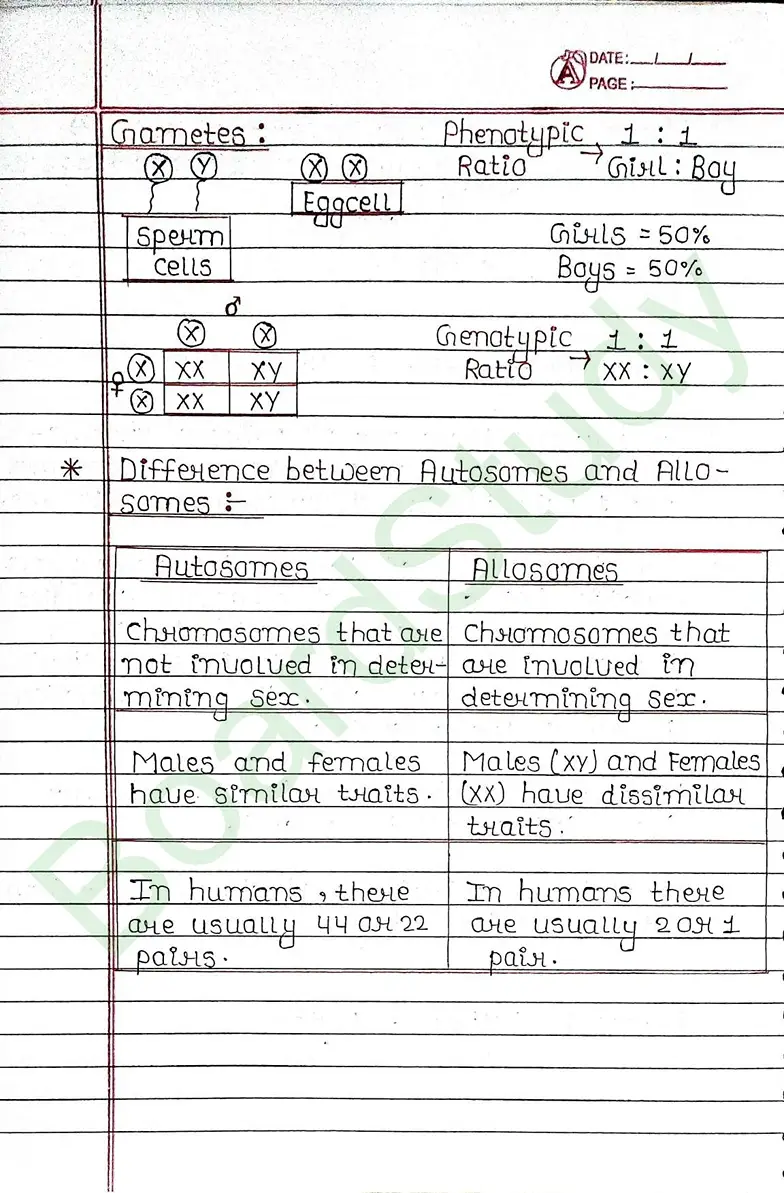 DATE: / /
PAGE:
Gametes :
X Y X X
Eggcell
Sperm
cells
Phenotypic 1 : 1
Ratio → Girl : Boy
Girls = 50%
Boys = 50%
♂
X X
♀ X XX XY
X XX XY
Genotypic 1 : 1
Ratio → XX : XY
* Difference between Autosomes and Allo-
somes :-
Autosomes
Chromosomes that are
not involved in deter-
mining sex.
Males and females
have similar traits.
In humans, there
are usually 44 or 22
pairs.
Allosomes
Chromosomes that
are involved in
determining sex.
Males (XY) and Females
(XX) have dissimilar
traits.
In humans there
are usually 2 or 1
pair.
BoardStudy